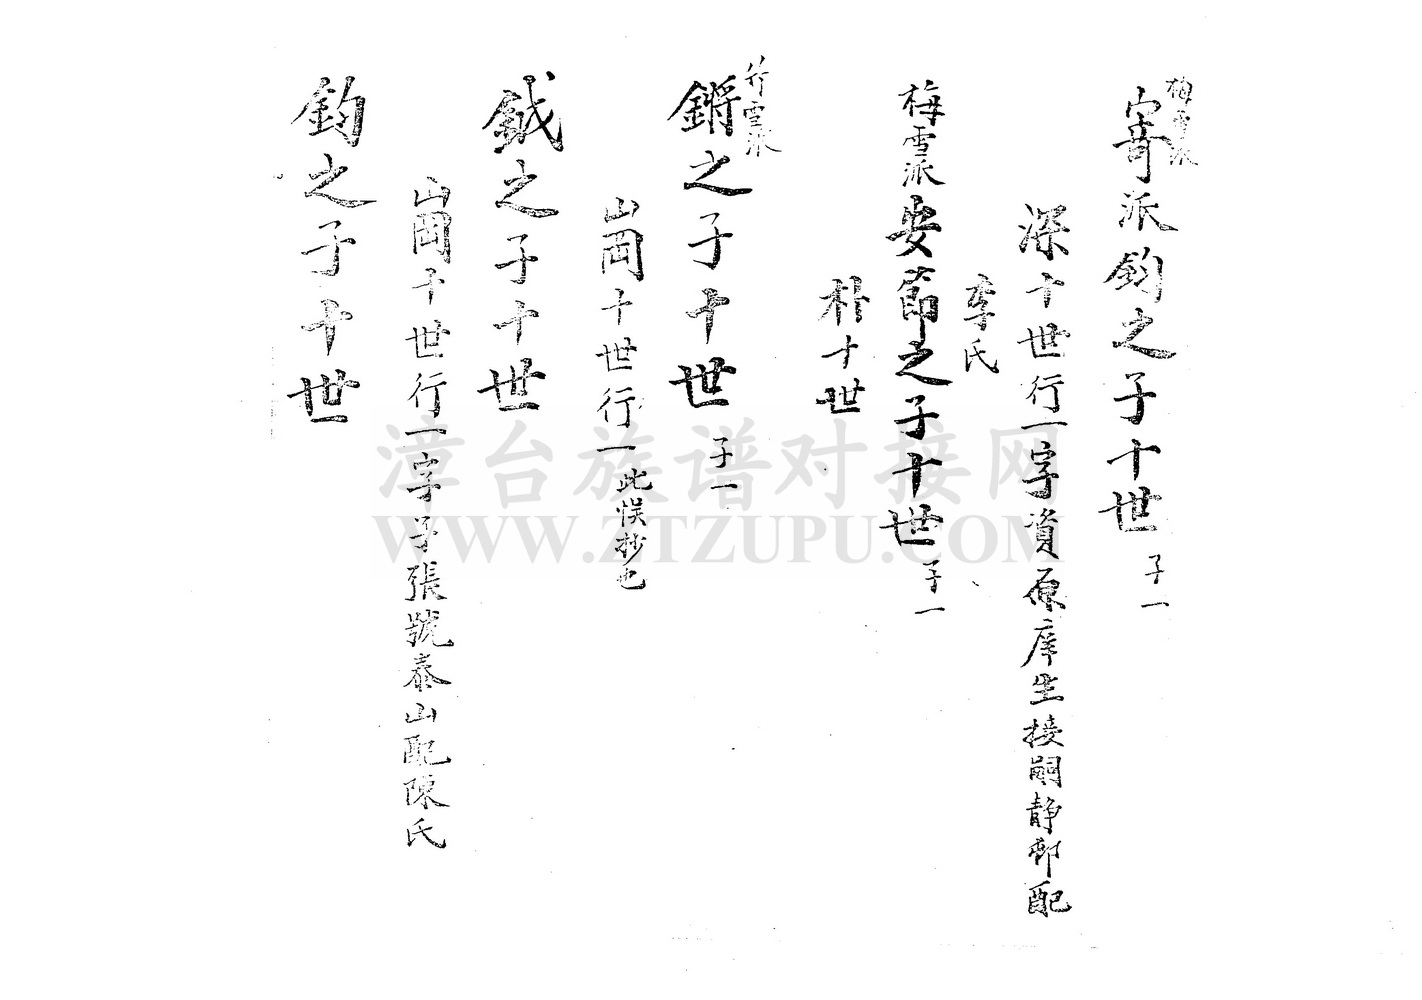 梅雪派
寄派鈞之子十世 子一
深十世行一字資原庠生接嗣靜邨配
李氏
梅雪派安節之子十世 子一
朴十世
竹雪派
鏘之子十世 子一
山岡十世行一此悞抄也
鉞之子十世
山岡十世行一字子張號泰山配陳氏
鈞之子十世
漳台族谱对接网
WWW.ZTZUPU.COM